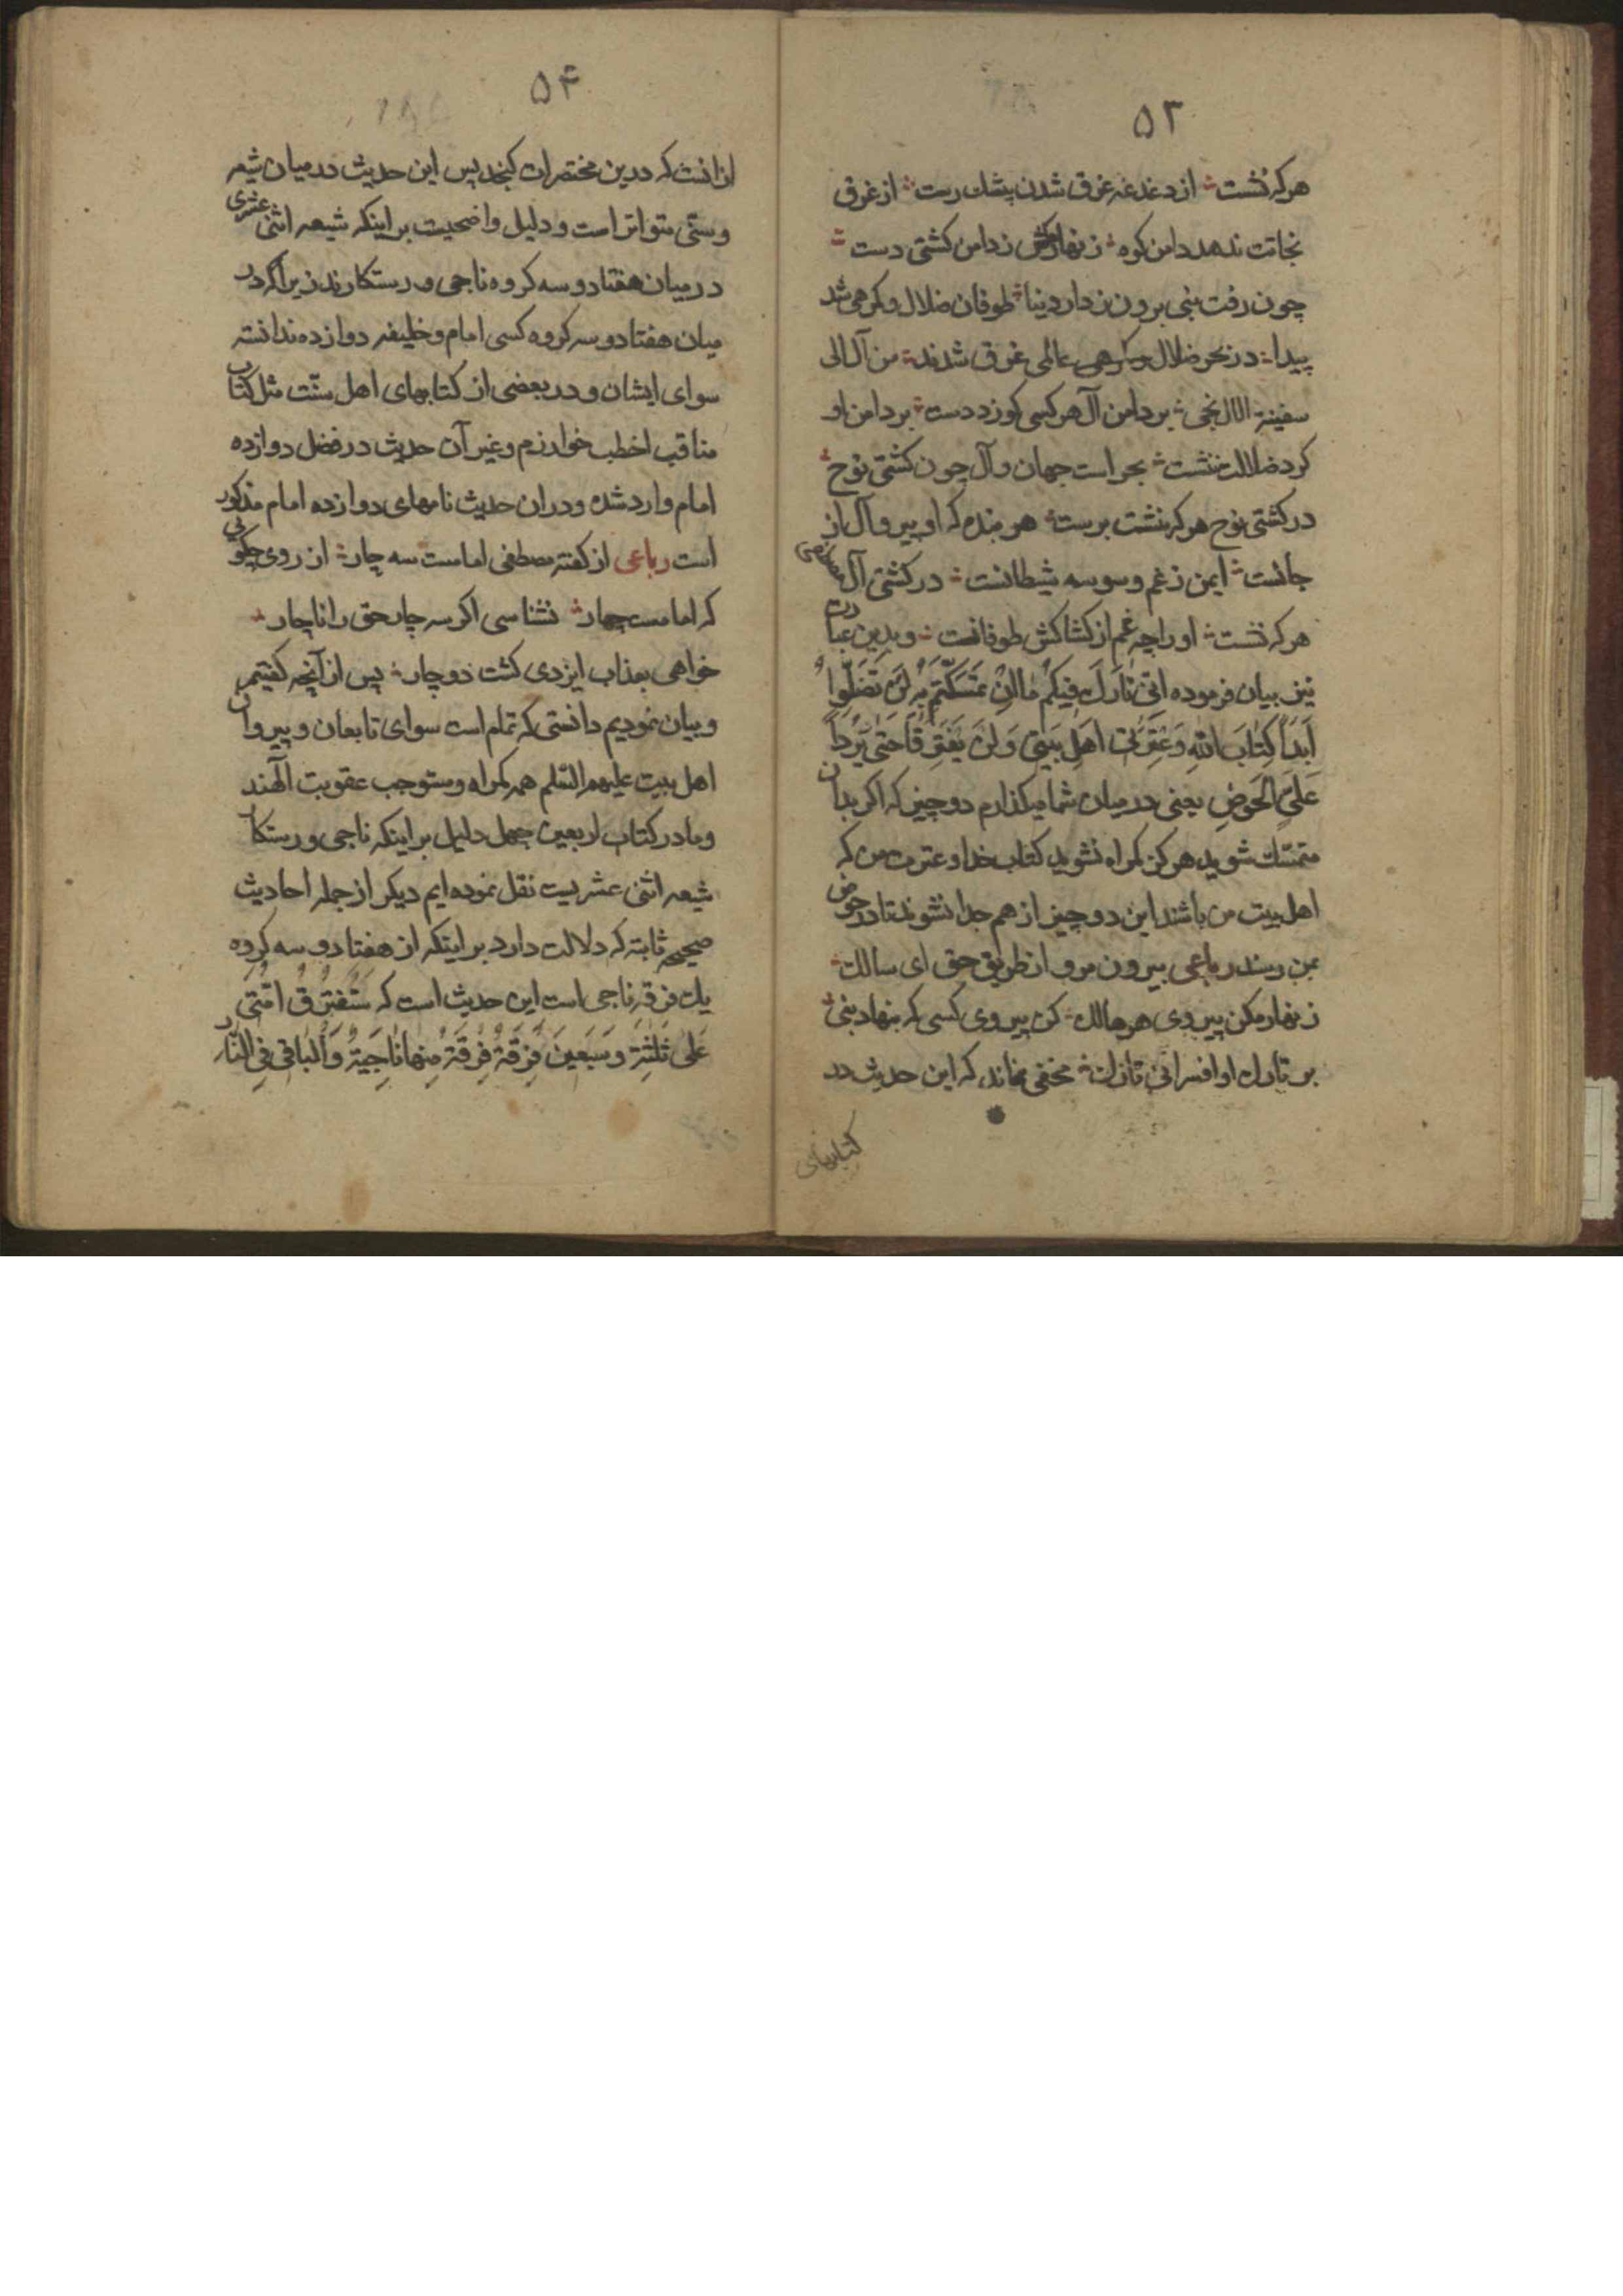 ۵۳
هرکه نشست از دغدغه غرق شدن بیشک رست از غرق
نجاتت ندهد دامن کوه زنهار مکش ز دامن کشتی دست
چون رفت نبی برون ز دار دنیا طوفان ضلال و کمرهی شد
پیدا در بحر ضلال و کمرهی عالمی غرق شدند من آل الی
سفینة الال نجی بر دامن آل هر کسی کو زد دست بر دامن او
کرد ضلالت ننشست بحر است جهان و آل چون کشتی نوح
در کشتی نوح هرکه بنشست برست هر بنده که او پیرو آل از
جانست ایمن ز غم و سوسه شیطانست در کشتی آل
هرکه نشست او را چه غم از کشاکش طوفانست و بدین عبارت
نیز بیان فرموده انّی تارک فیکم ما ان تمسّکتم به لن تضلّوا
ابداً کتاب الله وعترتی اهل بیتی ولن یفترقا حتی یردا
علیّ الحوض یعنی در میان شما میکذارم دو چیز که اکر بدان
متمسّک شوید هرکز کمراه نشوید کتاب خدا و عترت من که
اهل بیت من باشند این دو چیز از هم جدا نشوند تا در حوض
بمن رسند رباعی بیرون مرو از طریق حق ای سالک
زنهار مکن پیروی هر هالک کن پیروی کسی که بنهاد نبی
بر تارک او افسر انّی تارک مخفی نماند که این حدیث در
کتابهای
۵۴
ازانست که درین مختصرات کنجد پس این حدیث در میان شیعه
و سنّی متواتر است و دلیل واضحیست بر اینکه شیعه اثنی عشری
در میان هفتاد و سه کروه ناجی و رستکارند زیرا که در
میان هفتاد و سه کروه کسی امام و خلیفه دوازده ندانسته
سوای ایشان و در بعضی از کتابهای اهل سنّت مثل کتاب
مناقب اخطب خوارزم و غیر آن حدیث در فضل دوازده
امام وارد شده و دران حدیث نامهای دوازده امام مذکور
است رباعی از کفته مصطفی امامست سه چار از روی چکوئی
که امامست چهار نشناسی اکر سه چار حق را ناچار
خواهی بعذاب ایزدی کشت دوچار پس از آنچه کفتیم
و بیان نمودیم دانستی که تمام است سوای تابعان و پیروان
اهل بیت علیهم السّلم همه کمراه و مستوجب عقوبت الهند
و ما در کتاب اربعین چهل دلیل بر اینکه ناجی و رستکار
شیعه اثنی عشریست نقل نموده ایم دیکر از جمله احادیث
صحیحه ثابته که دلالت دارد بر اینکه از هفتاد و سه کروه
یک فرقه ناجی است این حدیث است که ستفترق امّتی
علی ثلثة وسبعین فرقة فرقة منها ناجیة والباقی فی النّار